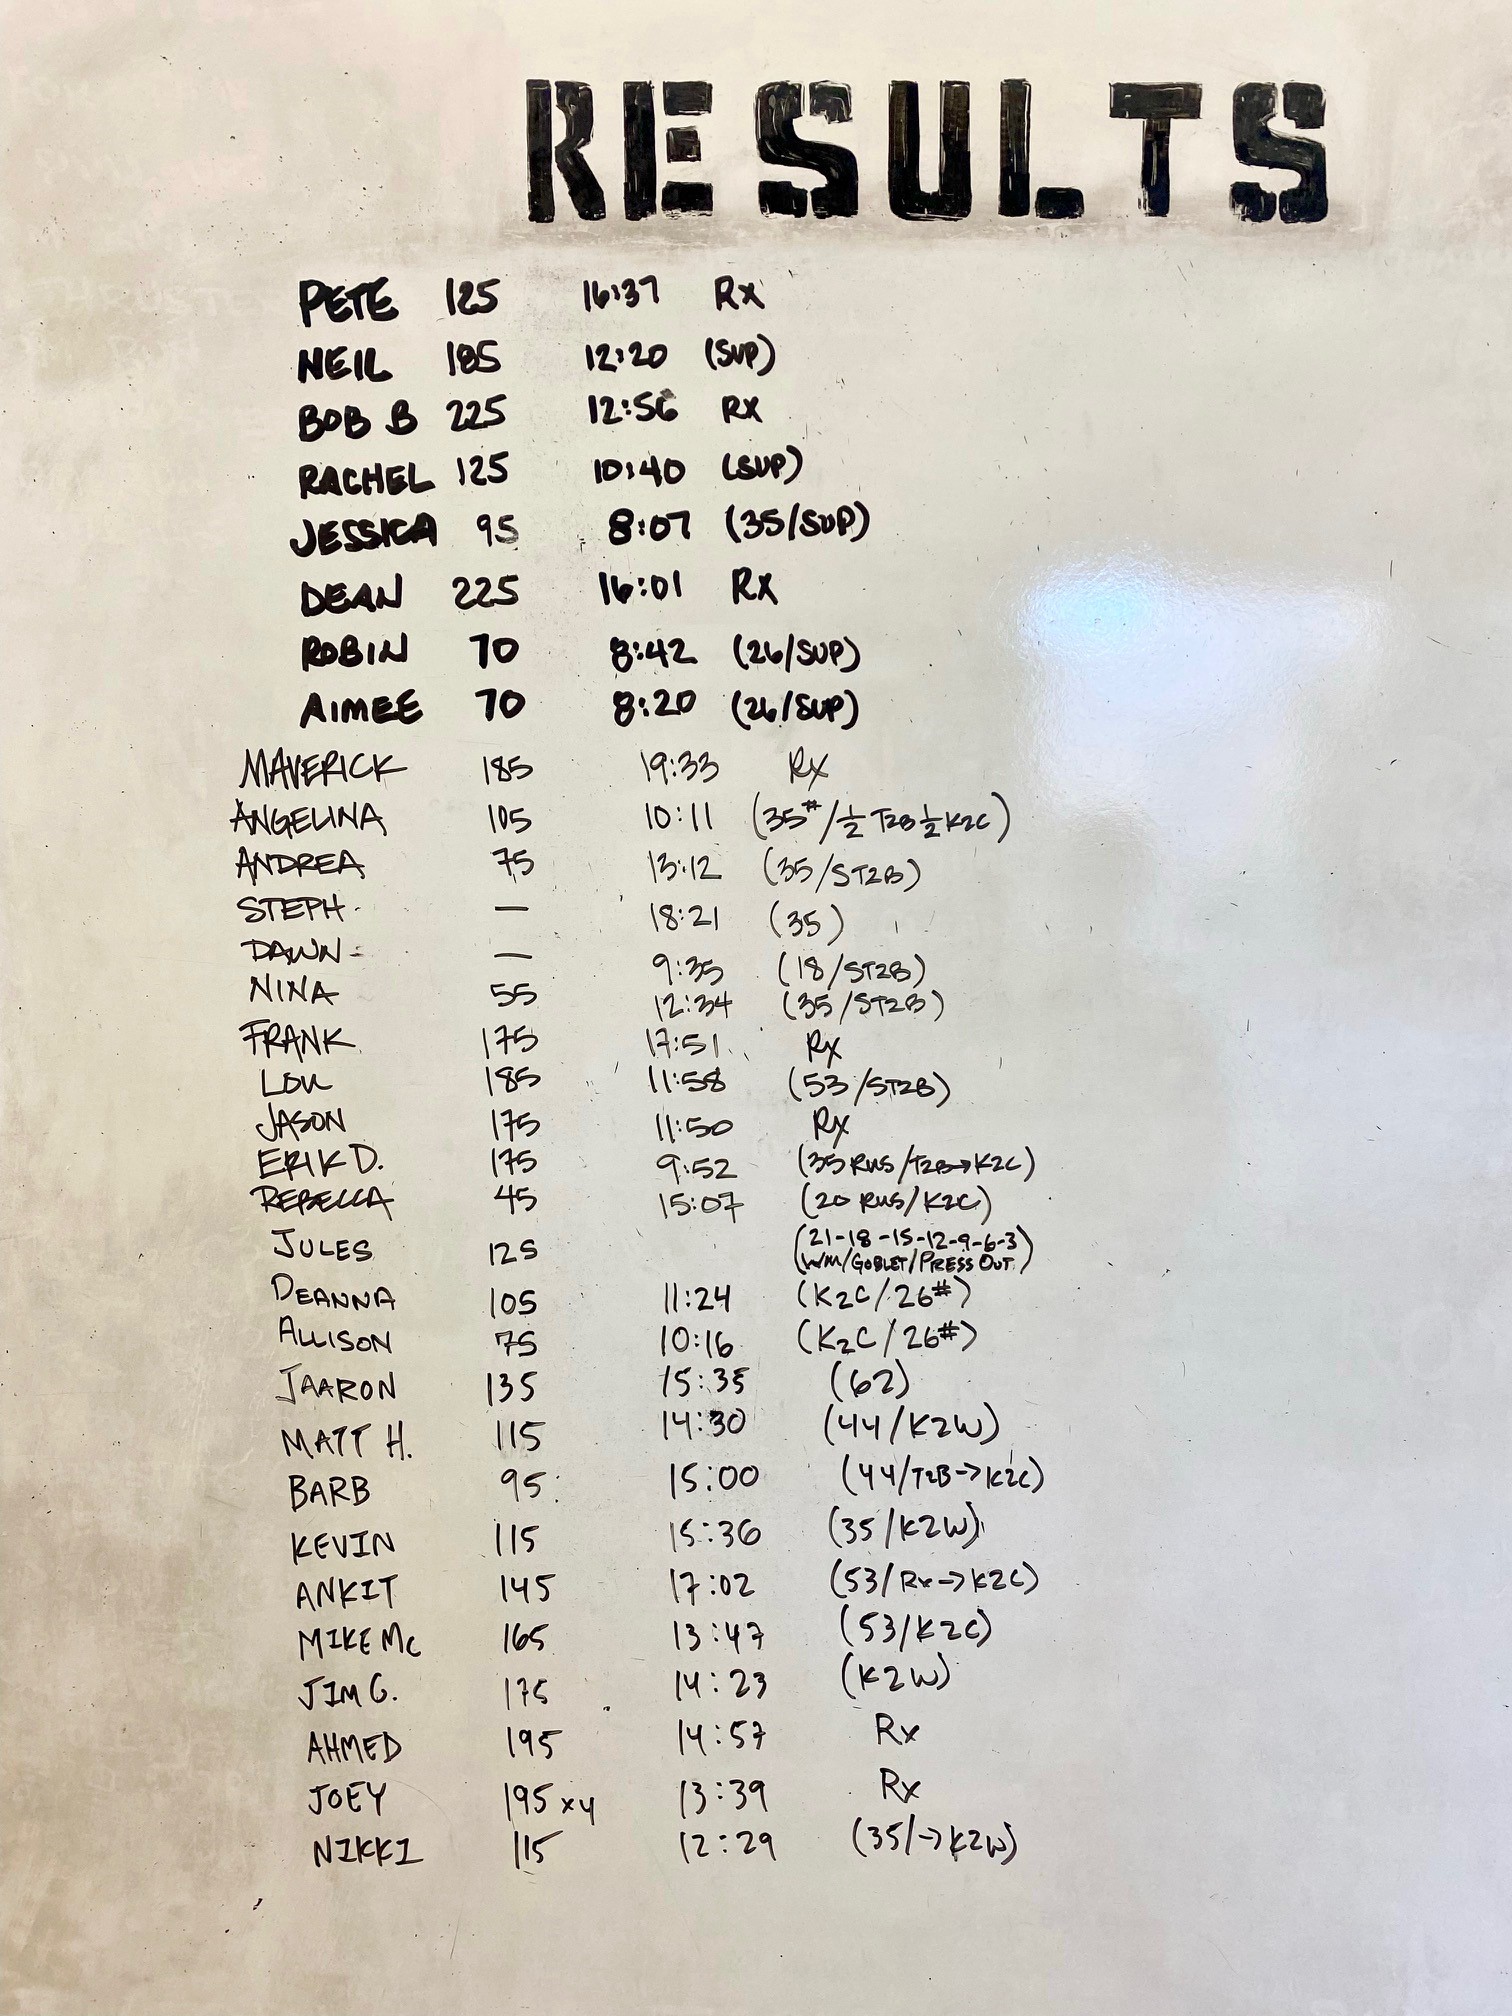 RESULTS
PETE 125 16:37 Rx
NEIL 185 12:20 (SUP)
BOB B 225 12:56 RX
RACHEL 125 10:40 (SUP)
JESSICA 95 8:07 (35/SUP)
DEAN 225 16:01 Rx
ROBIN 70 8:42 (26/SUP)
AIMEE 70 8:20 (26/SUP)
MAVERICK 185 19:33 Rx
ANGELINA 105 10:11 (35#/½ T2B ½ K2C)
ANDREA 75 13:12 (35/ST2B)
STEPH — 18:21 (35)
DAWN — 9:35 (18/ST2B)
NINA 55 12:34 (35/ST2B)
FRANK 175 17:51 Rx
LOU 185 11:58 (53/ST2B)
JASON 175 11:50 Rx
ERIK D. 175 9:52 (35 RUS/T2B→K2C)
REBECCA 45 15:07 (20 RUS/K2C)
JULES 125 (21-18-15-12-9-6-3)
(WM/GOBLET/PRESS OUT)
DEANNA 105 11:24 (K2C/26#)
ALLISON 75 10:16 (K2C/26#)
JAARON 135 15:35 (62)
MATT H. 115 14:30 (44/K2W)
BARB 95 15:00 (44/T2B→K2C)
KEVIN 115 15:36 (35/K2W)
ANKIT 145 17:02 (53/Rx→K2C)
MIKE MC 165 13:47 (53/K2C)
JIM G. 175 14:23 (K2W)
AHMED 195 14:57 Rx
JOEY 195 x4 13:39 Rx
NIKKI 115 12:29 (35/→K2W)